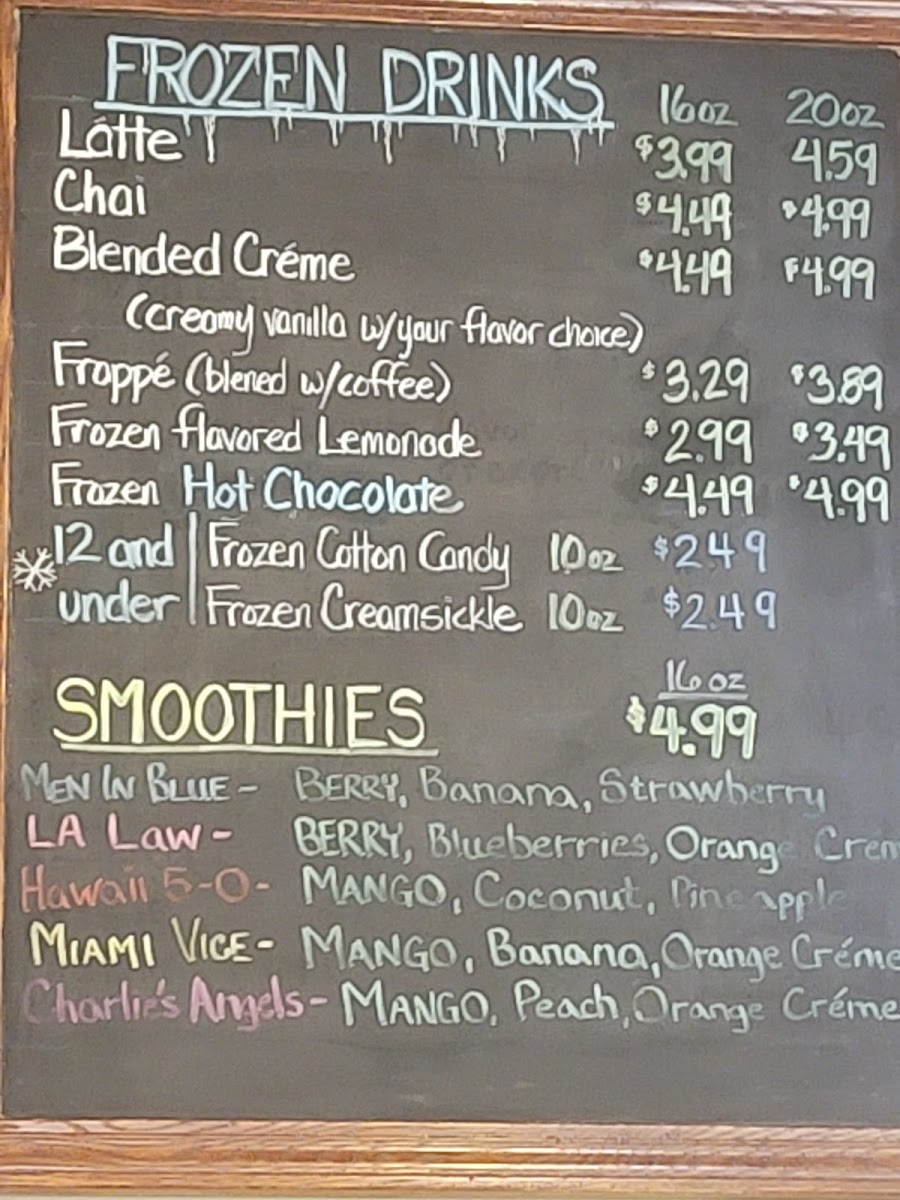 FROZEN DRINKS 16oz 20oz
Látte $3.99 4.59
Chai $4.49 $4.99
Blended Créme $4.49 $4.99
(creamy vanilla w/your flavor choice)
Frappé (blened w/coffee) $3.29 $3.89
Frozen flavored Lemonade $2.99 $3.49
Frozen Hot Chocolate $4.49 $4.99
12 and | Frozen Cotton Candy 10oz $2.49
under | Frozen Creamsickle 10oz $2.49
16 oz
SMOOTHIES $4.99
MEN IN BLUE - BERRY, Banana, Strawberry
LA LAW - BERRY, Blueberries, Orange Crém
Hawaii 5-0 - MANGO, Coconut, Pineapple
MIAMI VICE - MANGO, Banana, Orange Créme
Charlie's Angels - MANGO, Peach, Orange Créme